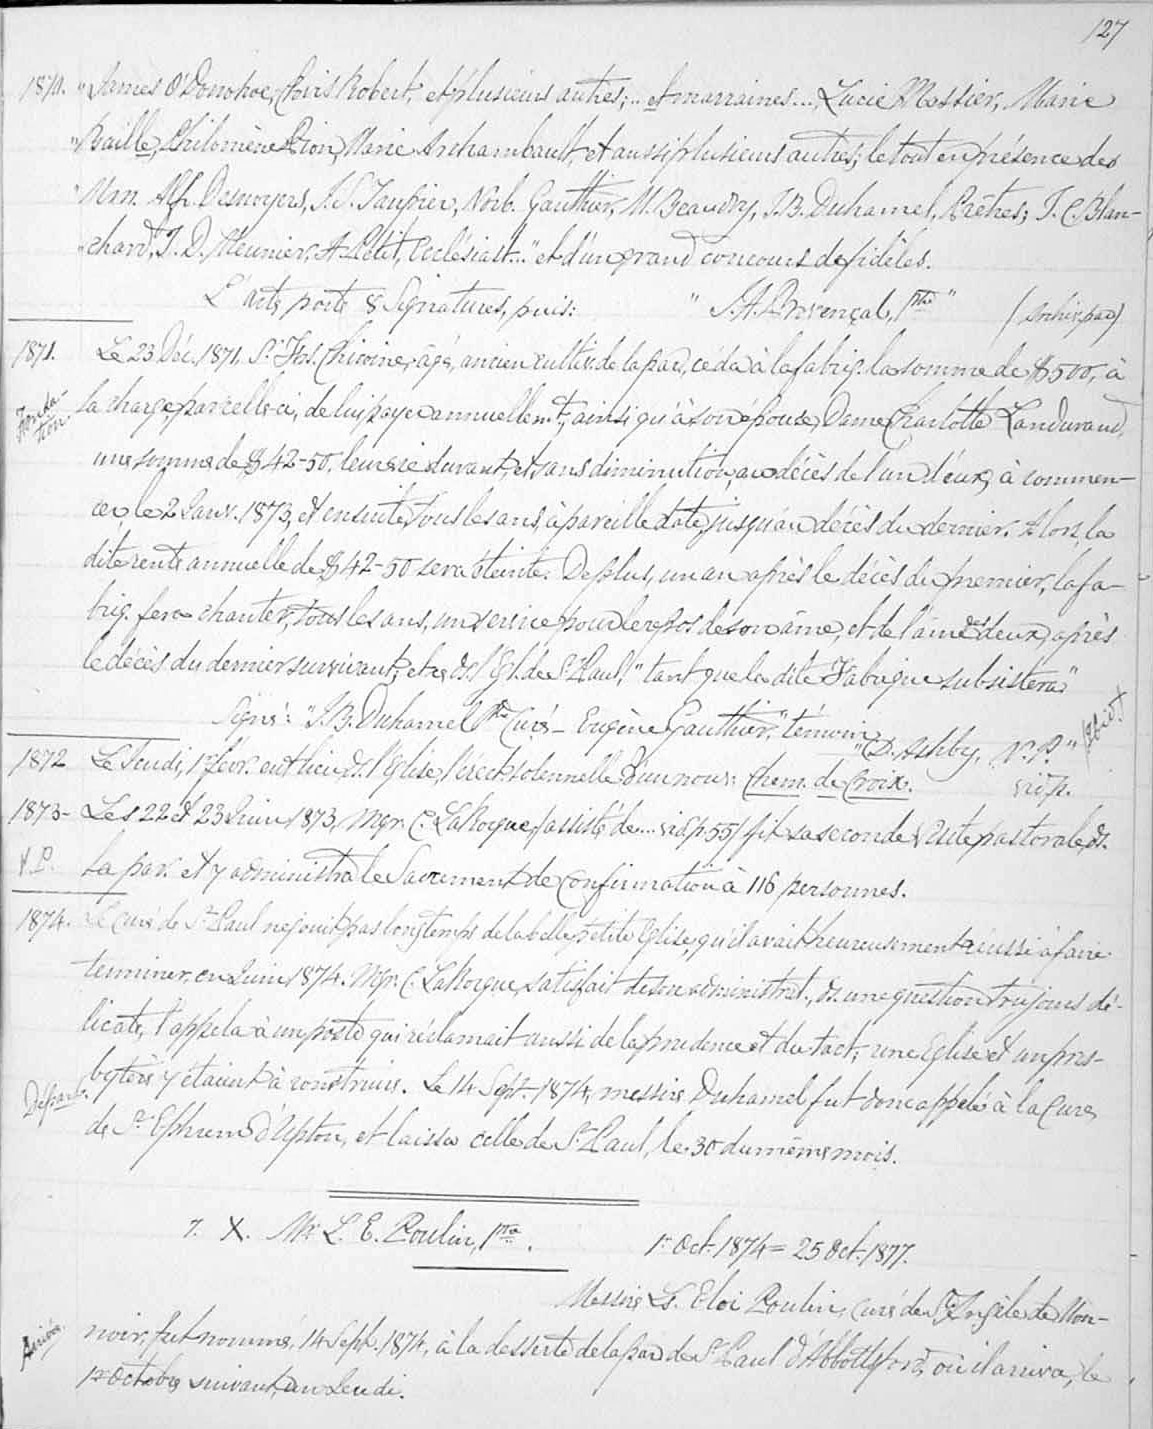 127
1871. "James O'Donohoe, Chris Robert, et plusieurs autres; .. et marraines..., Lucie Messier, Marie
"Baille, Philomène Dion, Marie Archambault, et aussi plusieurs autres; le tout en présence des
"Mrs. Alf. Desnoyers, J. S. Taupier, Norb. Gauthier, M. Beaudry, J. B. Duhamel, Prêtres; J. C. Blan-
"chard, J. D. Meunier, A. Petit, Ecclésiast..." et d'un grand concours de fidèles.
L'acte porte 8 Signatures, puis: "J. A. Provençal, Ptre" (Archiv. par.)
1871. Le 23 Déc. 1871, Sr. Frs. Chicoine, âgé, ancien cultiv. de la par., céda à la fabriq. la somme de $500, à
Fonda-
tion
la charge, par celle-ci, de lui payer annuellemt., ainsi qu'à son épouse, Dame Charlotte Landurand,
une somme de $42-50, leur vie durant, et sans diminution, au décès de l'un d'eux, à commen-
cer, le 2 Janv. 1873, et ensuite, tous les ans, à pareille date, jusqu'au décès du dernier. Alors, la
dite rente annuelle de $42-50 sera éteinte. De plus, un an après le décès du premier, la fa-
briq. fera chanter, tous les ans, un service pour le repos de son âme, et de l'âme des deux, après
le décès du dernier survivant; et ce ds. l'Egl. de St. Paul, "tant que la dite Fabrique subsistera"
Signé: "J. B. Duhamel Ptre Curé - Eugène Gauthier," témoin
"D. Ashby, N. P."
1872 Le Jeudi, 1r févr. eut lieu, ds. l'Eglise, l'érect. solennelle d'un nouv: Chem. de Croix. vid. p.
1873- Les 22 et 23 Juin 1873, Mgr. C. LaRocque, (assisté de... vid. p. 55) fit sa seconde Visite pastorale, ds.
V. P. la par. et y administra le Sacrement de Confirmation à 116 personnes.
1874. Le Curé de St. Paul ne jouit pas longtemps de la belle petite Eglise, qu'il avait heureusement réussi à faire
terminer, en Juin 1874. Mgr. C. LaRocque, satisfait de son administrat., ds. une question toujours dé-
licate, l'appela à un poste qui réclamait aussi de la prudence et du tact; une Eglise et un pres-
bytère y étaient à construire. Le 14 Sept. 1874, messire Duhamel fut donc appelé à la Cure,
Départ.
de St. Ephrem d'Upton, et laissa celle de St. Paul, le 30 du même mois.
7. X. Mr. L. E. Poulin, Ptre. 1r Oct. 1874 = 25 Oct. 1877.
Messire Ls. Eloi Poulin, curé de Ste Angèle de Mon-
Arrivée.
noir, fut nommé, 14 Sept. 1874, à la desserte de la par. de St. Paul d'Abbottsford, où il arriva, le
1r Octobre suivant, un Jeudi.